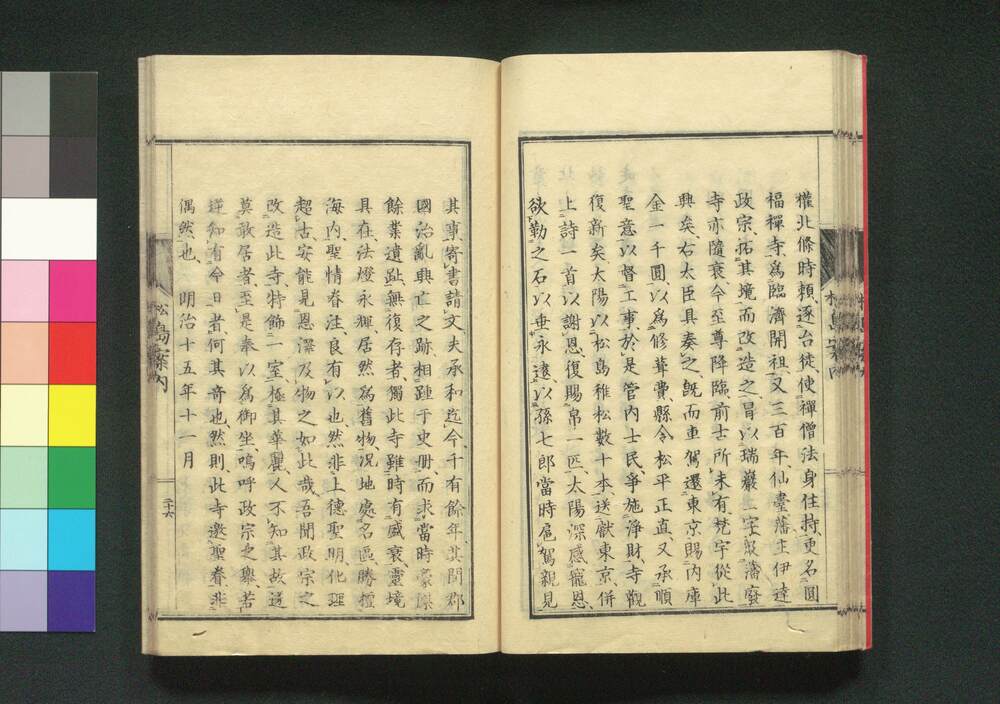 權北條時頼、逐台徒、使禪僧法身住持、更名圓
福禪寺、爲臨濟開祖、又三百年、仙臺藩主伊達
政宗、拓其境而改造之、冒以瑞巖二字、及藩廢
寺亦隨衰、今至尊降臨、前古所未有、梵宇從此
興矣、右太臣具奏之、既而車駕還東京、賜内庫
金一千圓、以爲修葺費、縣令松平正直、又承順
聖意、以督工事、於是管内士民爭施淨財、寺觀
復新矣、太陽以松島稚松數十本、送獻東京、併
上詩一首、以謝恩、復賜帛一匹、太陽深感寵恩、
欲勒之石、以垂永遠、以孫七郎當時扈駕親見
其事、寄書請文、夫承和迄今、千有餘年、其間郡
國治亂興亡之跡、相踵于史册、而求當時豪傑
餘業遺趾、無復存者、獨此寺雖時有盛衰、靈境
具在、法燈永輝、居然爲舊物、况地處名區、勝擅
海内、聖情眷注、良有以也、然非上德聖明、化理
超古、安能見恩澤及物之如此哉、吾聞政宗之
改造此寺、特飾一室、極其華麗、人不知其故、這
莫敢居者、至是奉以爲御坐、嗚呼政宗之擧、若
逆知有今日者、何其奇也、然則此寺邀聖眷、非
偶然也、　明治十五年十一月
松島案内
二十六